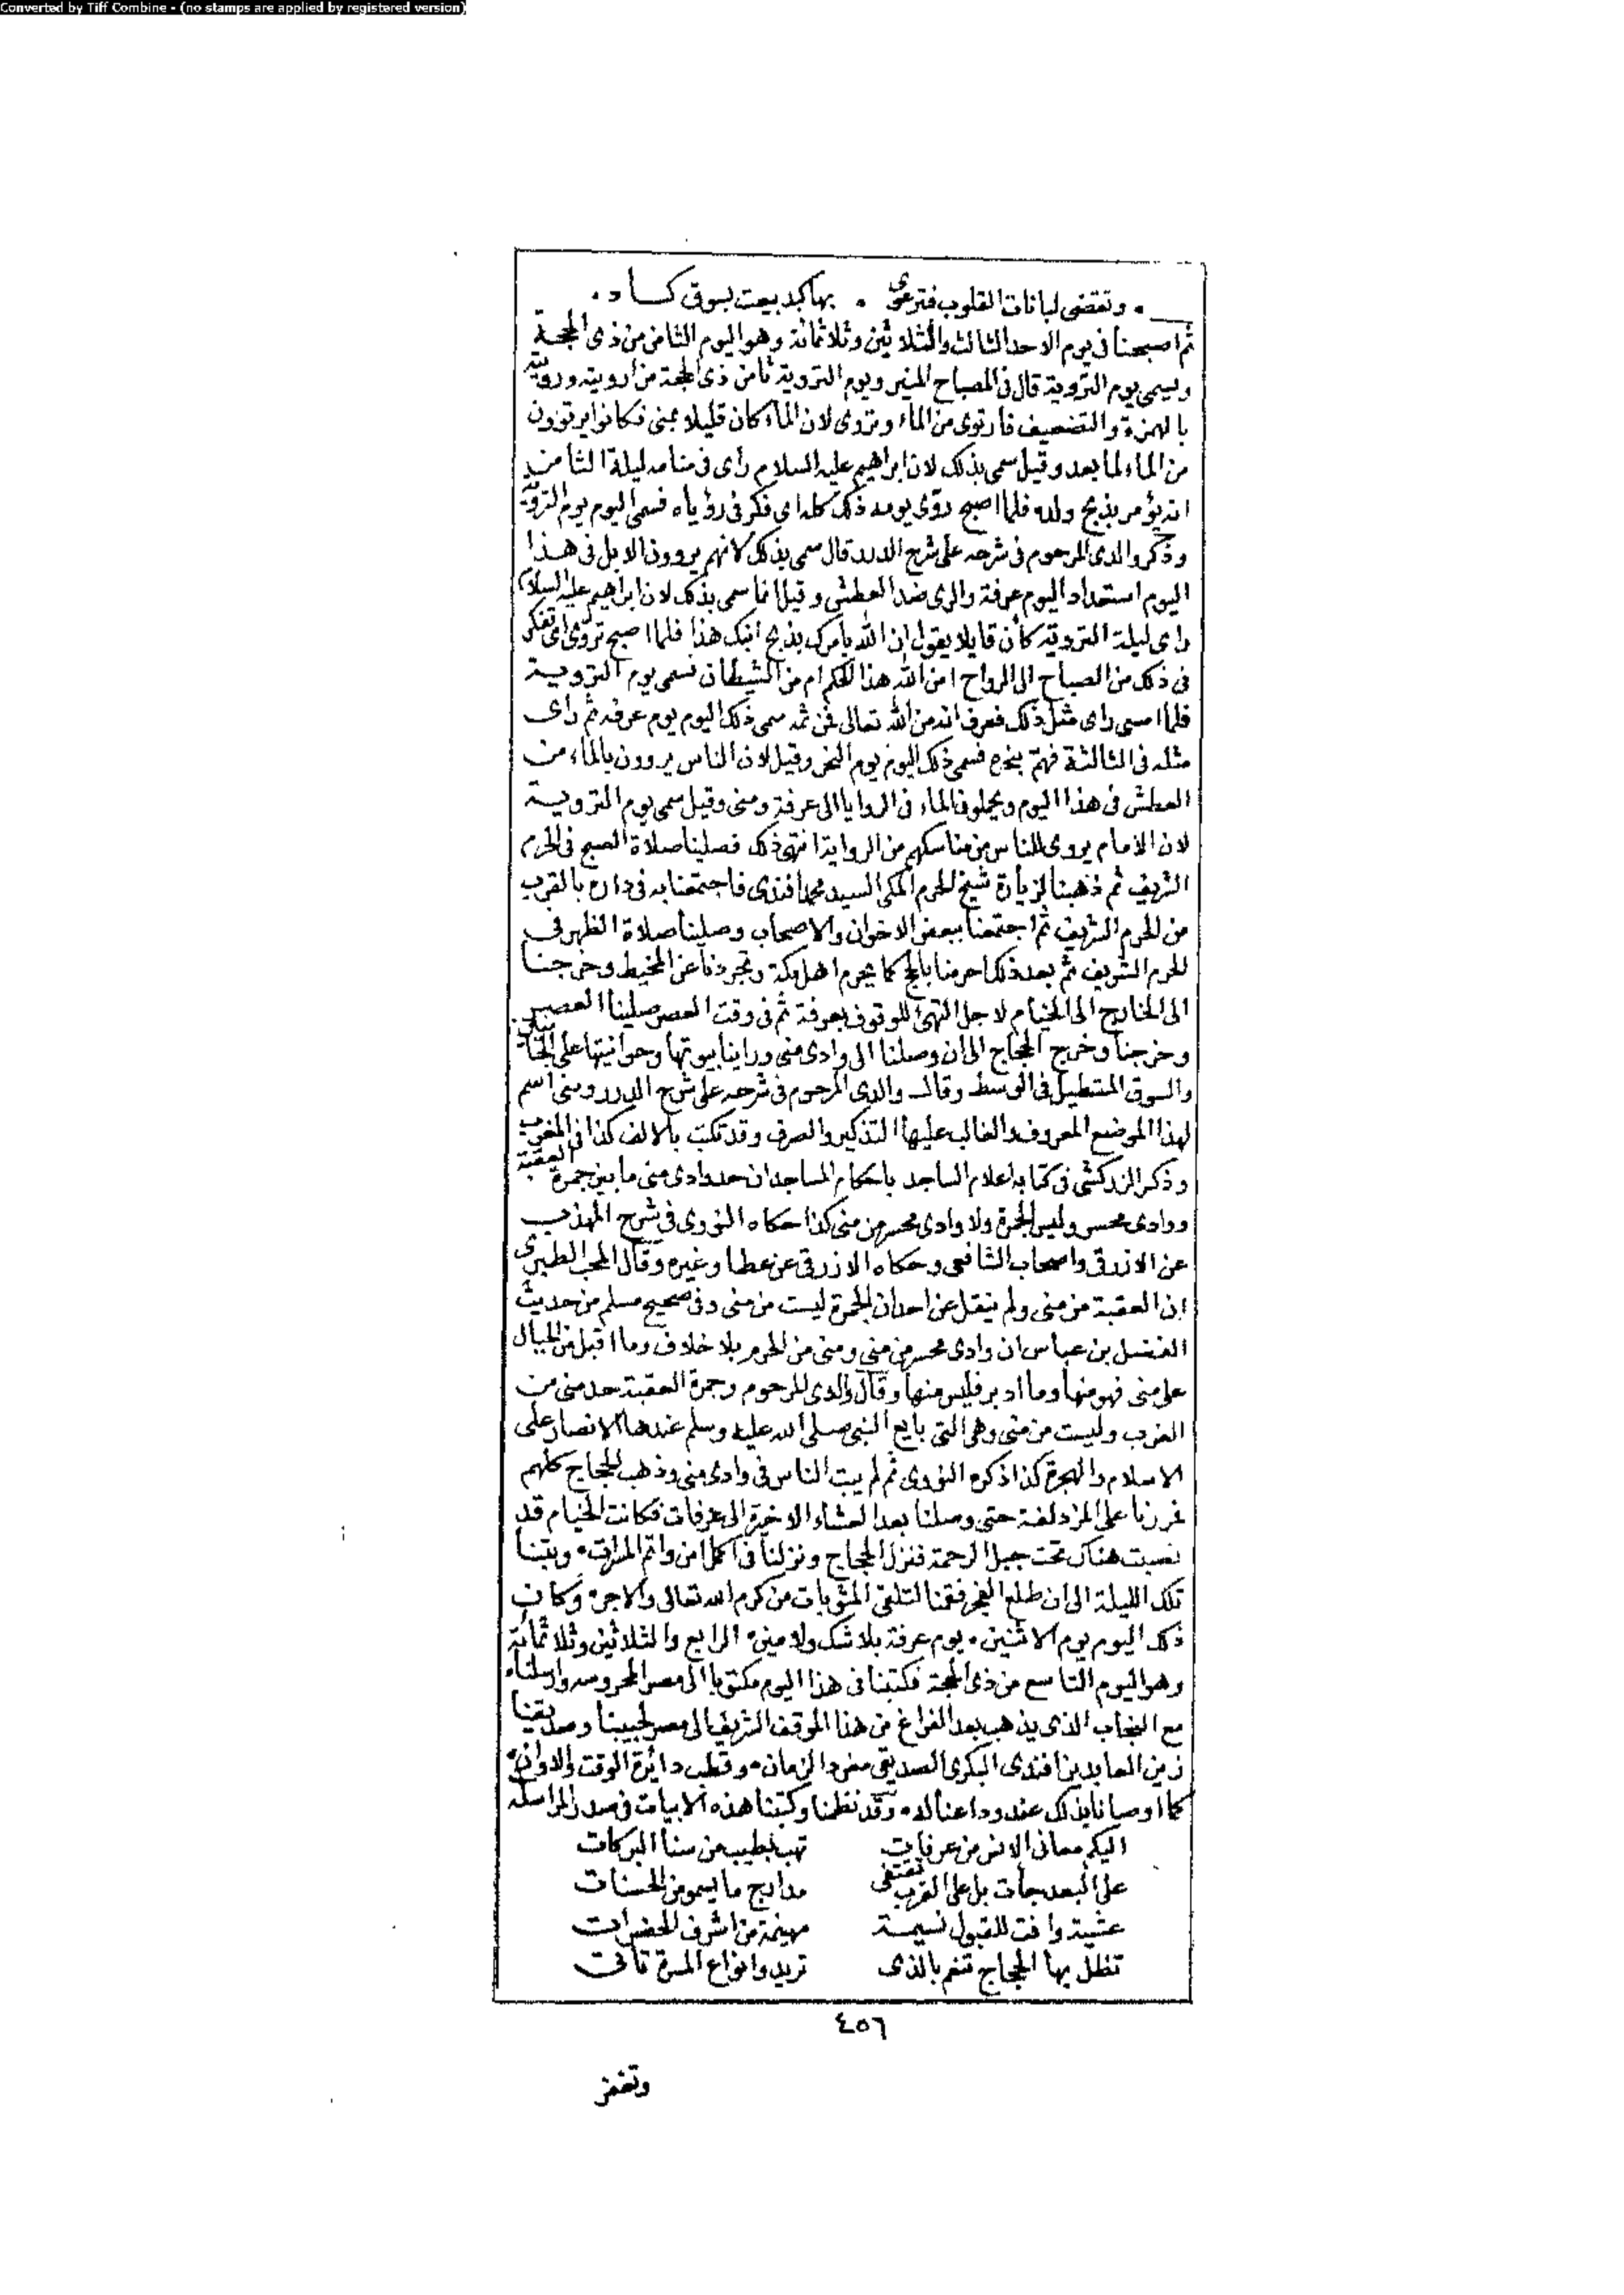 Converted by Tiff Combine - (no stamps are applied by registered version)
وتقضى لبانات القلوب فترعوى . بها كبد بيعت بسوق كساد .
ثم اصبحنا فى يوم الاحد الثالث والثلاثين وثلاثمائة وهو اليوم الثامن من ذى الحجة
ويسمى يوم التروية قال فى المصباح المنير ويوم التروية ثامن ذى الحجة من ارويته ورويته
بالهمزة والتضعيف فارتوى من الماء وتروى لان الماء كان قليلا بمنى فكانوا يرتوون
من الماء لما بعد وقيل سمى بذلك لان ابراهيم عليه السلام راى فى منامه ليلة الثامن
انه يؤمر بذبح ولده فلما اصبح روّى يومه ذلك كله اى فكر فى رؤياه فسمى اليوم يوم التروية
وذكر والدى المرحوم فى شرحه على شرح الدرر قال سمى بذلك لانهم يروون الابل فى هذا
اليوم استعدادا ليوم عرفة والرى ضد العطش وقيل انما سمى بذلك لان ابراهيم عليه السلام
راى ليلة التروية كأن قايلا يقول ان الله يأمرك بذبح ابنك هذا فلما اصبح تروى اى تفكر
فى ذلك من الصباح الى الرواح امن الله هذا الحكم ام من الشيطان فسمى يوم التروية
فلما امسى راى مثل ذلك فعرف انه من الله تعالى فمن ثمه سمى ذلك اليوم يوم عرفه ثم راى
مثله فى الثالثة فهمّ بنحره فسمى ذلك اليوم يوم النحر وقيل لان الناس يروون بالماء من
العطش فى هذا اليوم ويحملون الماء فى الروايا الى عرفة ومنى وقيل سمى يوم التروية
لان الامام يروى للناس من مناسكهم من الرواية انتهى ذلك فصلينا صلاة الصبح فى الحرم
الشريف ثم ذهبنا لزيارة شيخ الحرم المكى السيد محمد افندى فاجتمعنا به فى داره بالقرب
من الحرم الشريف ثم اجتمعنا ببعض الاخوان والاصحاب وصلينا صلاة الظهر فى
الحرم الشريف ثم بعد ذلك احرمنا بالحج كما يحرم اهل مكة وتجردنا عن المخيط وخرجنا
الى الخارج الى الخيام لاجل التهئ للوقوف بعرفة ثم فى وقت العصر صلينا العصر
وخرجنا وخرج الحجاج الى ان وصلنا الى وادى منى وراينا بيوتها وحوانيتها على الجانبين
والسوق المستطيل فى الوسط وقال والدى المرحوم فى شرحه على شرح الدرر ومنى اسم
لهذا الموضع المعروف والغالب عليها التذكير والصرف وقد تكتب بالالف كذا فى المغرب
وذكر الزركشى فى كتابه اعلام الساجد باحكام المساجد ان حد وادى منى ما بين جمرة العقبة
ووادى محسر وليس الجمرة ولا وادى محسر من منى كذا حكاه النووى فى شرح المهذب
عن الازرقى واصحاب الشافعى وحكاه الازرقى عن عطا وغيره وقال المحب الطبرى
ان العقبة من منى ولم ينقل عن احد ان الجمرة ليست من منى وفى صحيح مسلم من حديث
الفضل بن عباس ان وادى محسر من منى ومنى من الحرم بلا خلاف وما اقبل من الجبال
على منى فهو منها وما ادبر فليس منها وقال والدى المرحوم وجمرة العقبة حد منى من
الغرب وليست من منى وهى التى بايع النبى صلى الله عليه وسلم عندها الانصار على
الاسلام والهجرة كذا ذكره النووى ثم لم يبت الناس فى وادى منى وذهب الحجاج كلهم
فمررنا على المزدلفة حتى وصلنا بعد العشاء الاخيرة الى عرفات فكانت الخيام قد
نصبت هناك تحت جبل الرحمة فنزل الحجاج ونزلنا فى اكمل امن واتم المرات . وبتنا
تلك الليلة الى ان طلع الفجر فقمنا لتلقى المثوبات من كرم الله تعالى والاجر . وكان
ذلك اليوم يوم الاثنين . يوم عرفة بلا شك ولا مين . الرابع والثلاثين وثلاثمائة
وهو اليوم التاسع من ذى الحجة فكتبنا فى هذا اليوم مكتوبا الى مصر المحروسه وارسلناه
مع النجاب الذى يذهب بعد الفراغ من هذا الموقف الشريف الى مصر لحبيبنا وصديقنا
زين العابدين افندى البكرى الصديقى مفرد الزمان . وقطب دائرة الوقت والاوان .
كما اوصانا بذلك عند وداعنا له . وقد نظمنا وكتبنا هذه الابيات فى صدر المراسلة
اليكم معانى الانس من عرفات تهب بطيب من سنا البركات
على البعد جأت بل على القرب تقتفى مدارج ما يسمو من الحسنات
عشية وافت للقبول نسيمة مهينمة من اشرف الحضرات
تظل بها الحجاج تنعم بالذى تريد وانواع المسرة تاتى
٤٥٦